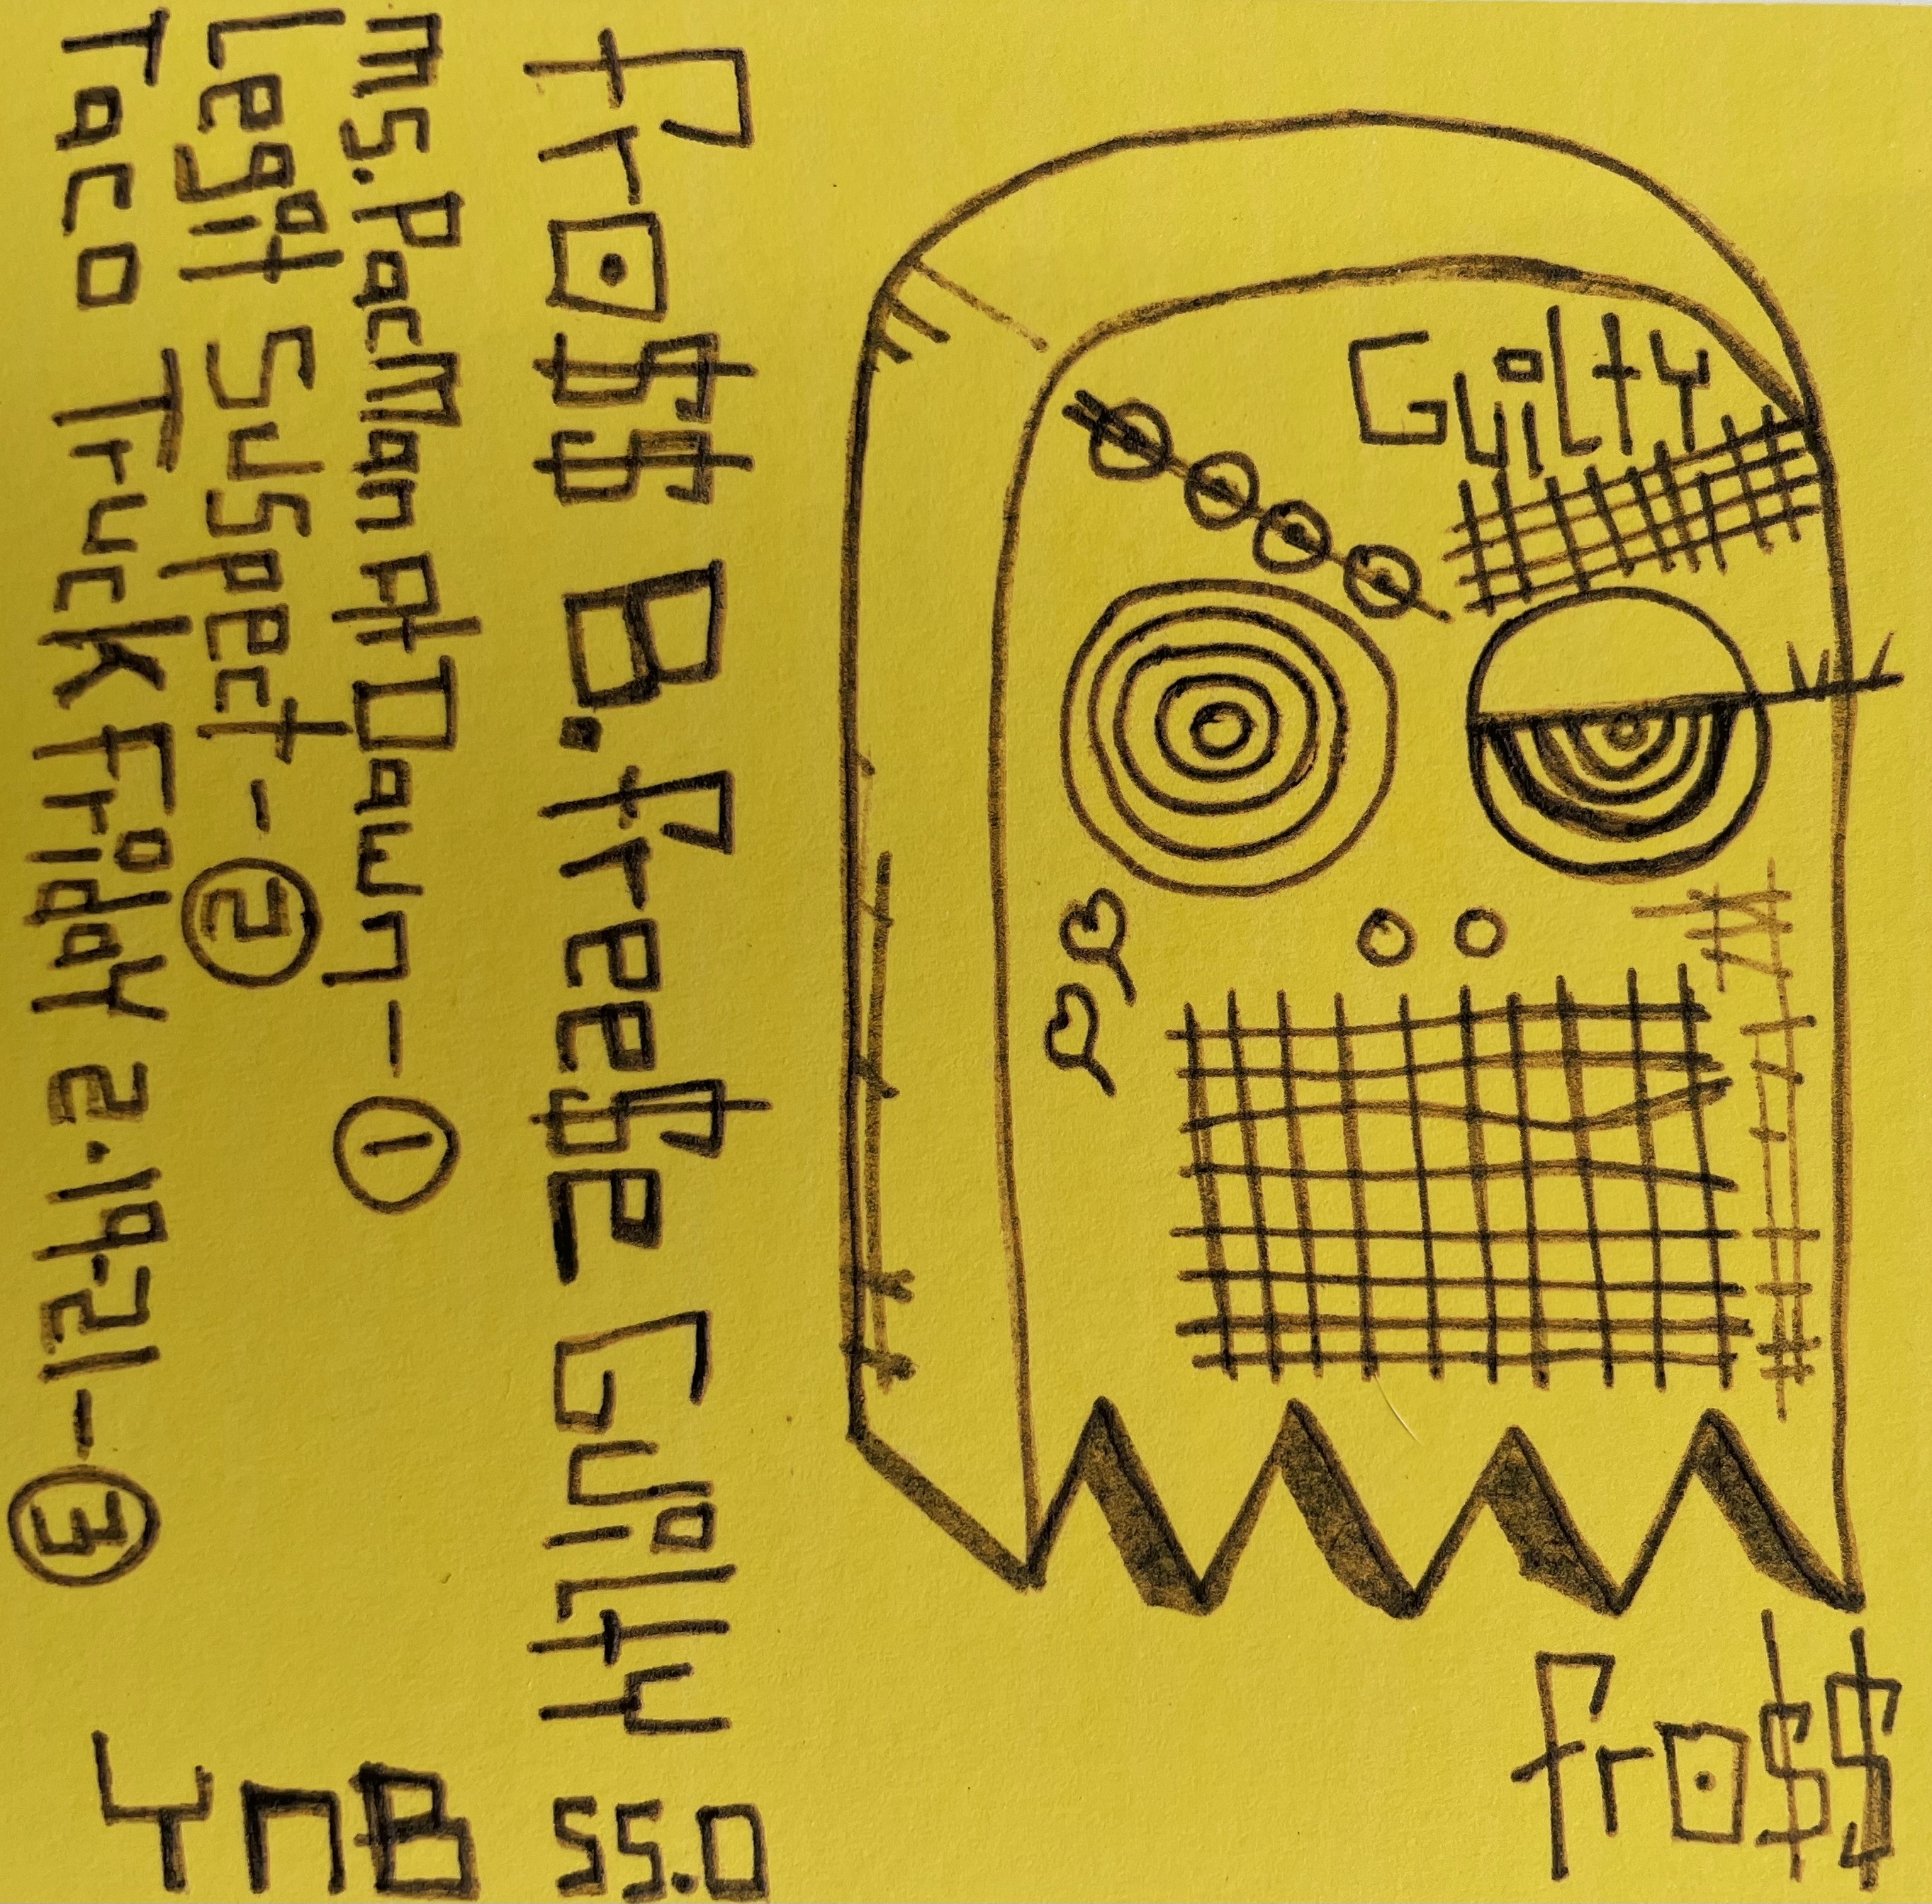 Guilty
frO$$
frO$$ B.free$e Guilty
Ms.PacMan at Dawn-①
Legit Suspect-②
Taco Truck Friday 2.19.21-③
YnB